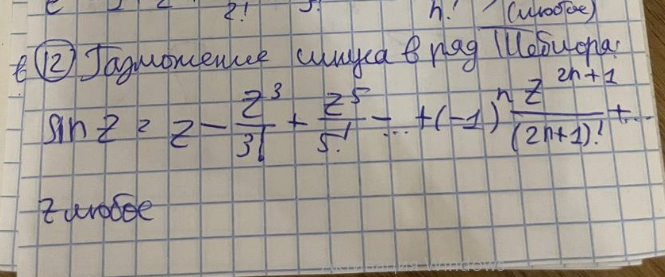 2! 5! n! (любое)
в (12) Разложение синуса в ряд Тейлора:
sin z = z - z³/3! + z⁵/5! - ... + (-1)ⁿ z²ⁿ⁺¹/(2n+1)! + ...
z любое